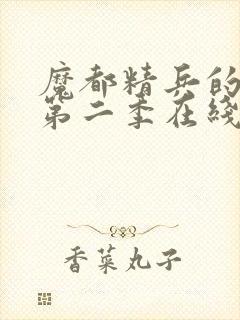 魔都精兵的
第二季在线
香菜丸子